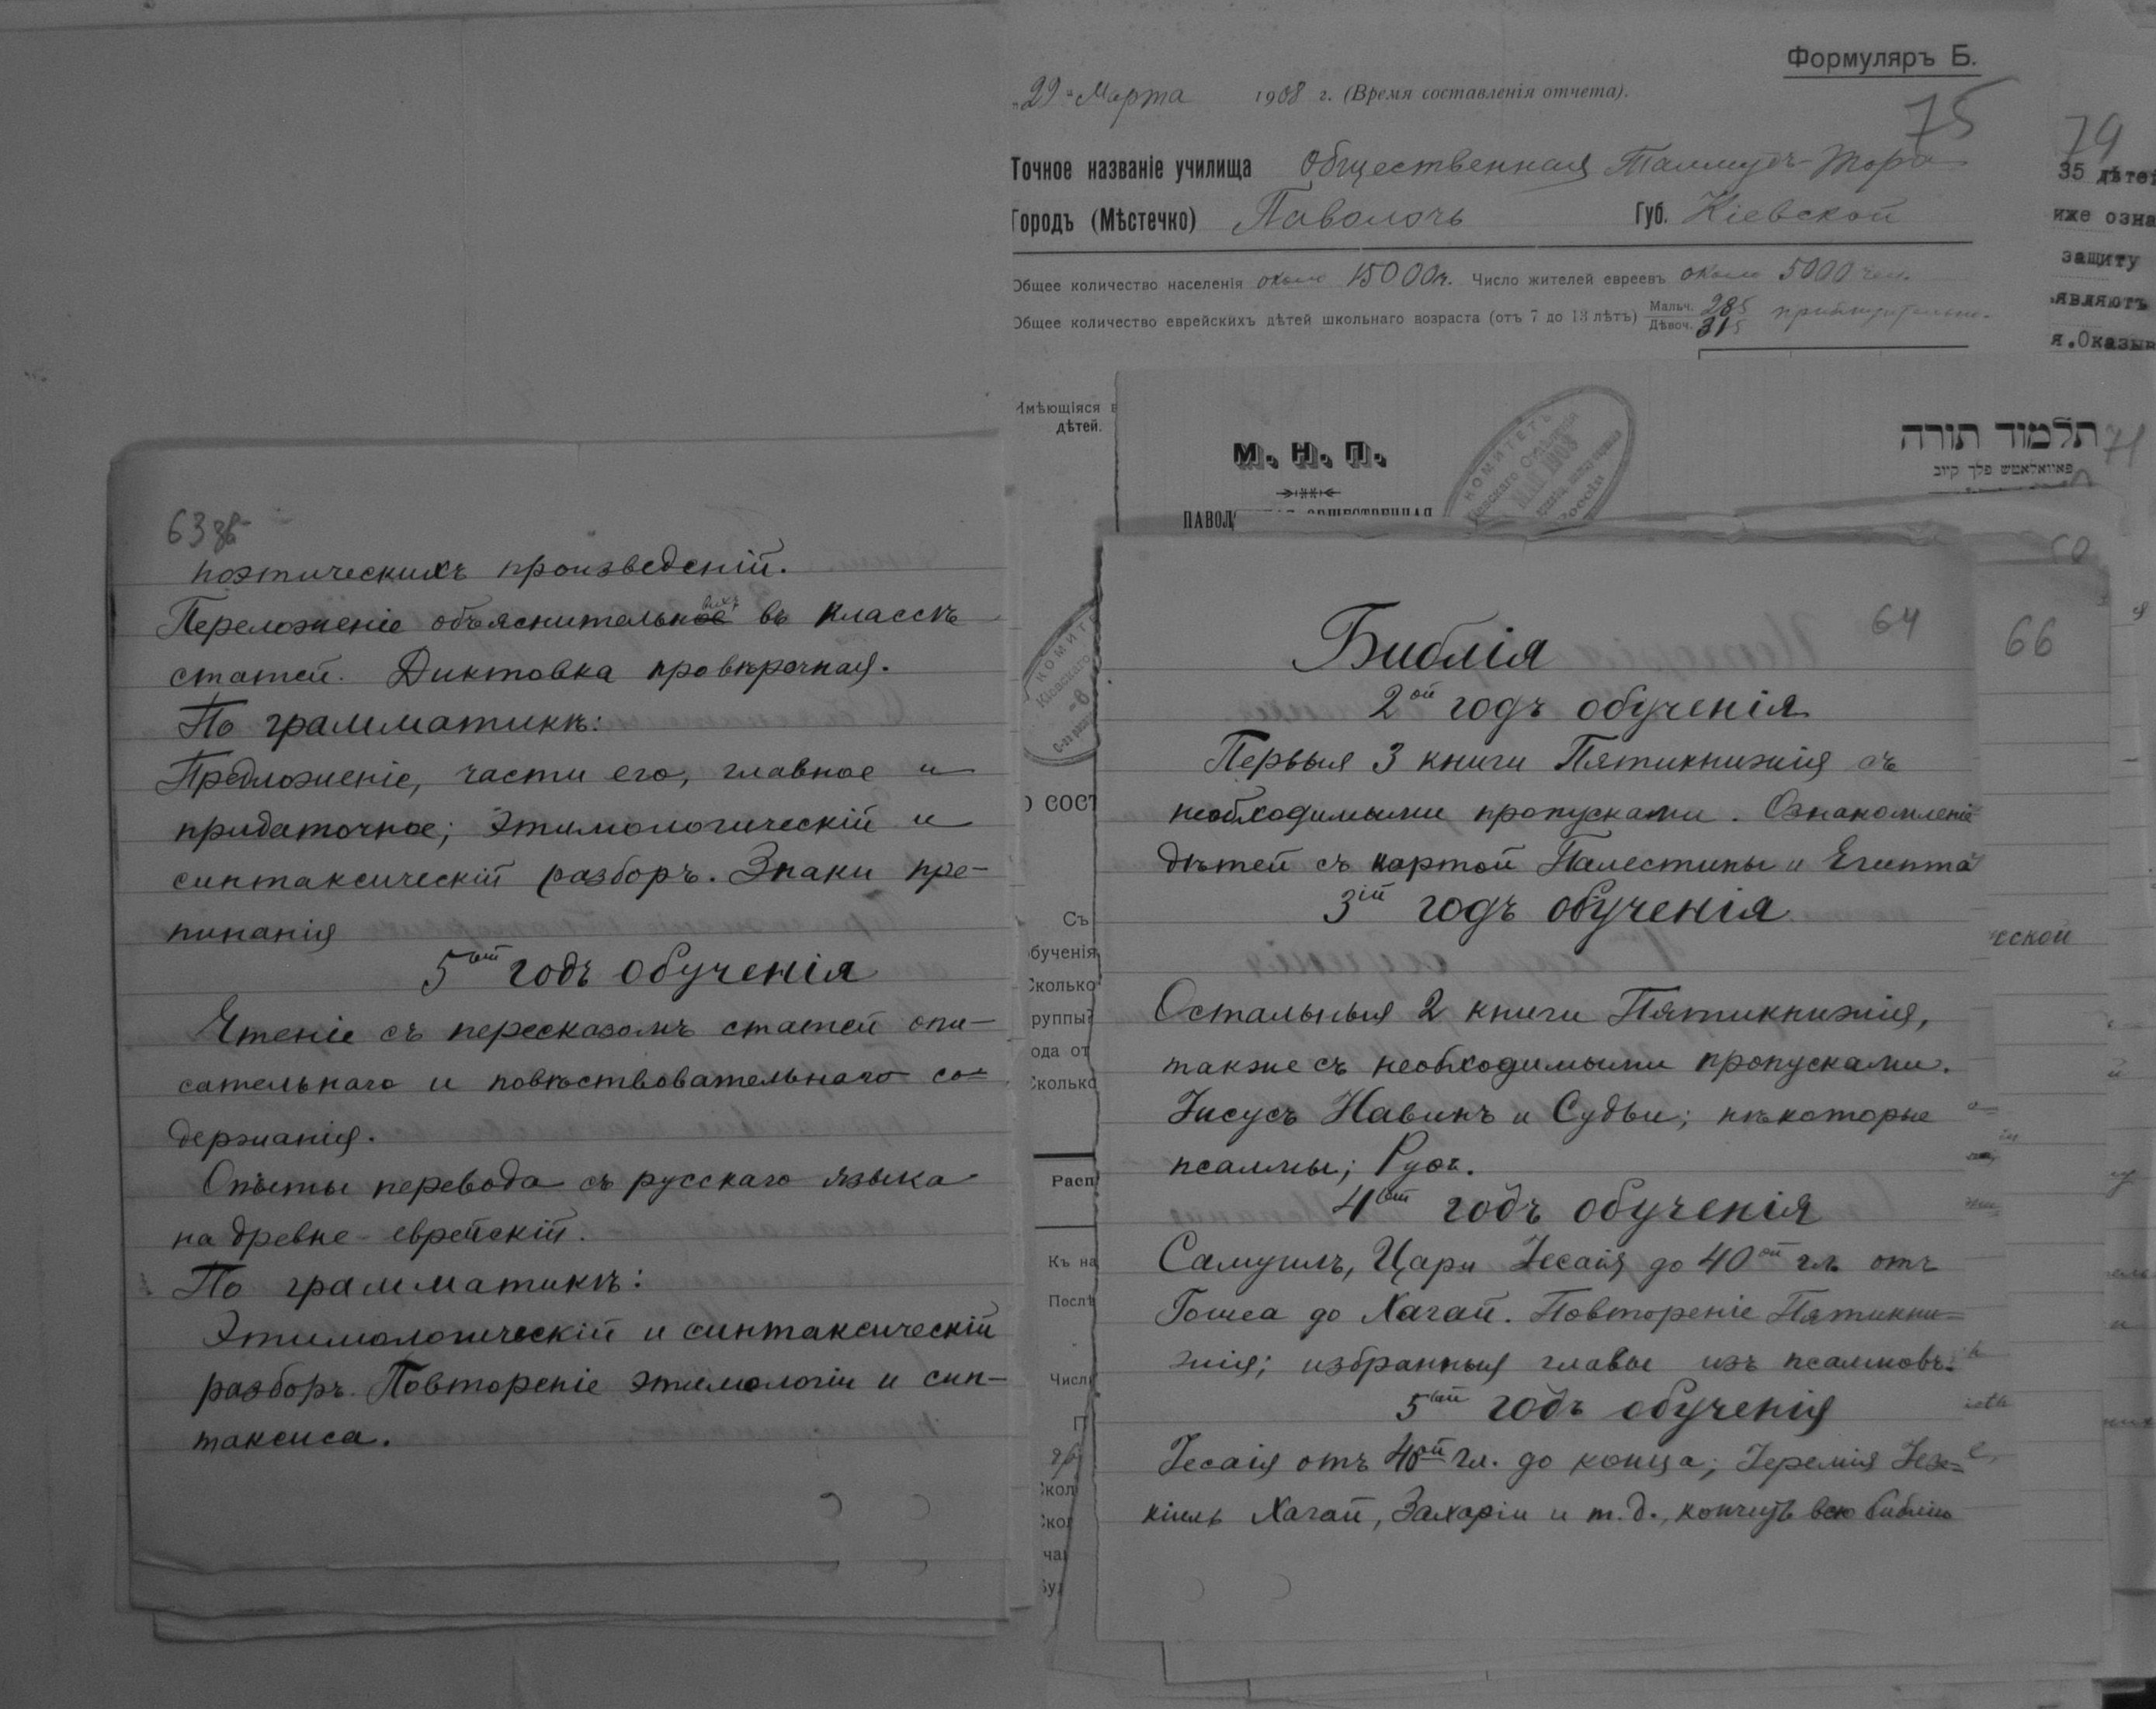 63 об
поэтическихъ произведеній.
Переложеніе объяснительное выхъ въ классѣ
статей. Диктовка провѣрочная.
По грамматикѣ:
Предложеніе, части его, главное и
придаточное; этимологическій и
синтаксическій разборъ. Знаки пре-
пинанія
5ый годъ обученія
Чтеніе съ пересказомъ статей опи-
сательнаго и повѣствовательнаго со=
держанія.
Опыты перевода съ русскаго языка
на древне-еврейскій.
По грамматикѣ:
Этимологическій и синтаксическій
разборъ. Повтореніе этимологіи и син-
таксиса.
Формуляръ Б.
„29“ Марта 1908 г. (Время составленія отчета).
75
Точное названіе училища Общественная Талмудъ-Тора
Городъ (Мѣстечко) Паволочь Губ. Кіевской
Общее количество населенія около 15000 ч. Число жителей евреевъ около 5000 чел.
Общее количество еврейскихъ дѣтей школьнаго возраста (отъ 7 до 13 лѣтъ) Мальч. 285
Дѣвоч. 315 приблизительно.
Имѣющіяся в
дѣтей.
М. Н. П.
ПАВОЛ
КОМИТЕТЪ
1908
Россіи
תלמוד תורה
פאוואלאטש פלך קיוב
71
79
35 дѣтей
иже озна
защиту
являютъ
я.Оказыв
КОМИТЕ
Кіевскаго
О СОСТ
Съ
бученія
Сколько
руппы?
ода от
Сколько
Расп
Къ на
Послѣ
Числ
П
Скол
Ско
ча
64
Библія
2ой годъ обученія
Первыя 3 книги Пятикнижія съ
необходимыми пропусками. Ознакомленіе
дѣтей съ картой Палестины и Египта
3ій годъ обученія
Остальныя 2 книги Пятикнижія,
также съ необходимыми пропусками.
Іисусъ Навинъ и Судьи; нѣкоторые
псалмы; Руѳь.
4ый годъ обученія
Самуилъ, Цари Іесаія до 40ой гл. отъ
Гошеа до Хагай. Повтореніе Пятикни=
жія; избранныя главы изъ псалмовъ.
5ый годъ обученія
Іесаія отъ 40ой гл. до конца; Іеремія Іезе=
кіиль Хагай, Захарія и т.д., кончить всю библію
66
ческой